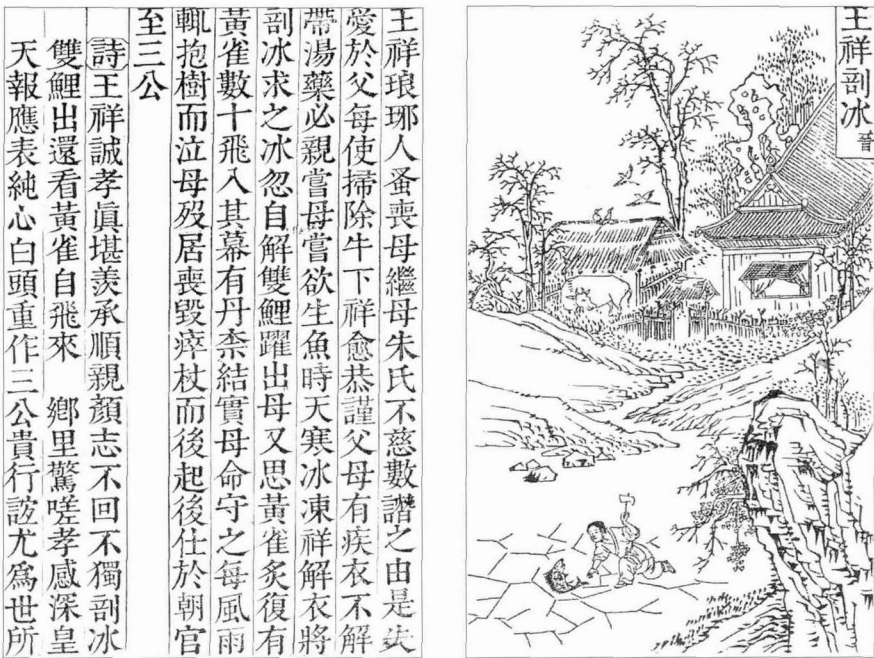 王祥剖冰 晉
王祥琅琊人蚤喪母繼母朱氏不慈數譖之由是失
愛於父每使掃除牛下祥愈恭謹父母有疾衣不解
帶湯藥必親嘗母嘗欲生魚時天寒冰凍祥解衣將
剖冰求之冰忽自解雙鯉躍出母又思黃雀炙復有
黃雀數十飛入其幕有丹柰結實母命守之每風雨
輒抱樹而泣母歿居喪毀瘁杖而後起後仕於朝官
至三公
詩王祥誠孝眞堪羨承順親顏志不回不獨剖冰
雙鯉出還看黃雀自飛來 鄕里驚嗟孝感深皇
天報應表純心白頭重作三公貴行誼尤爲世所